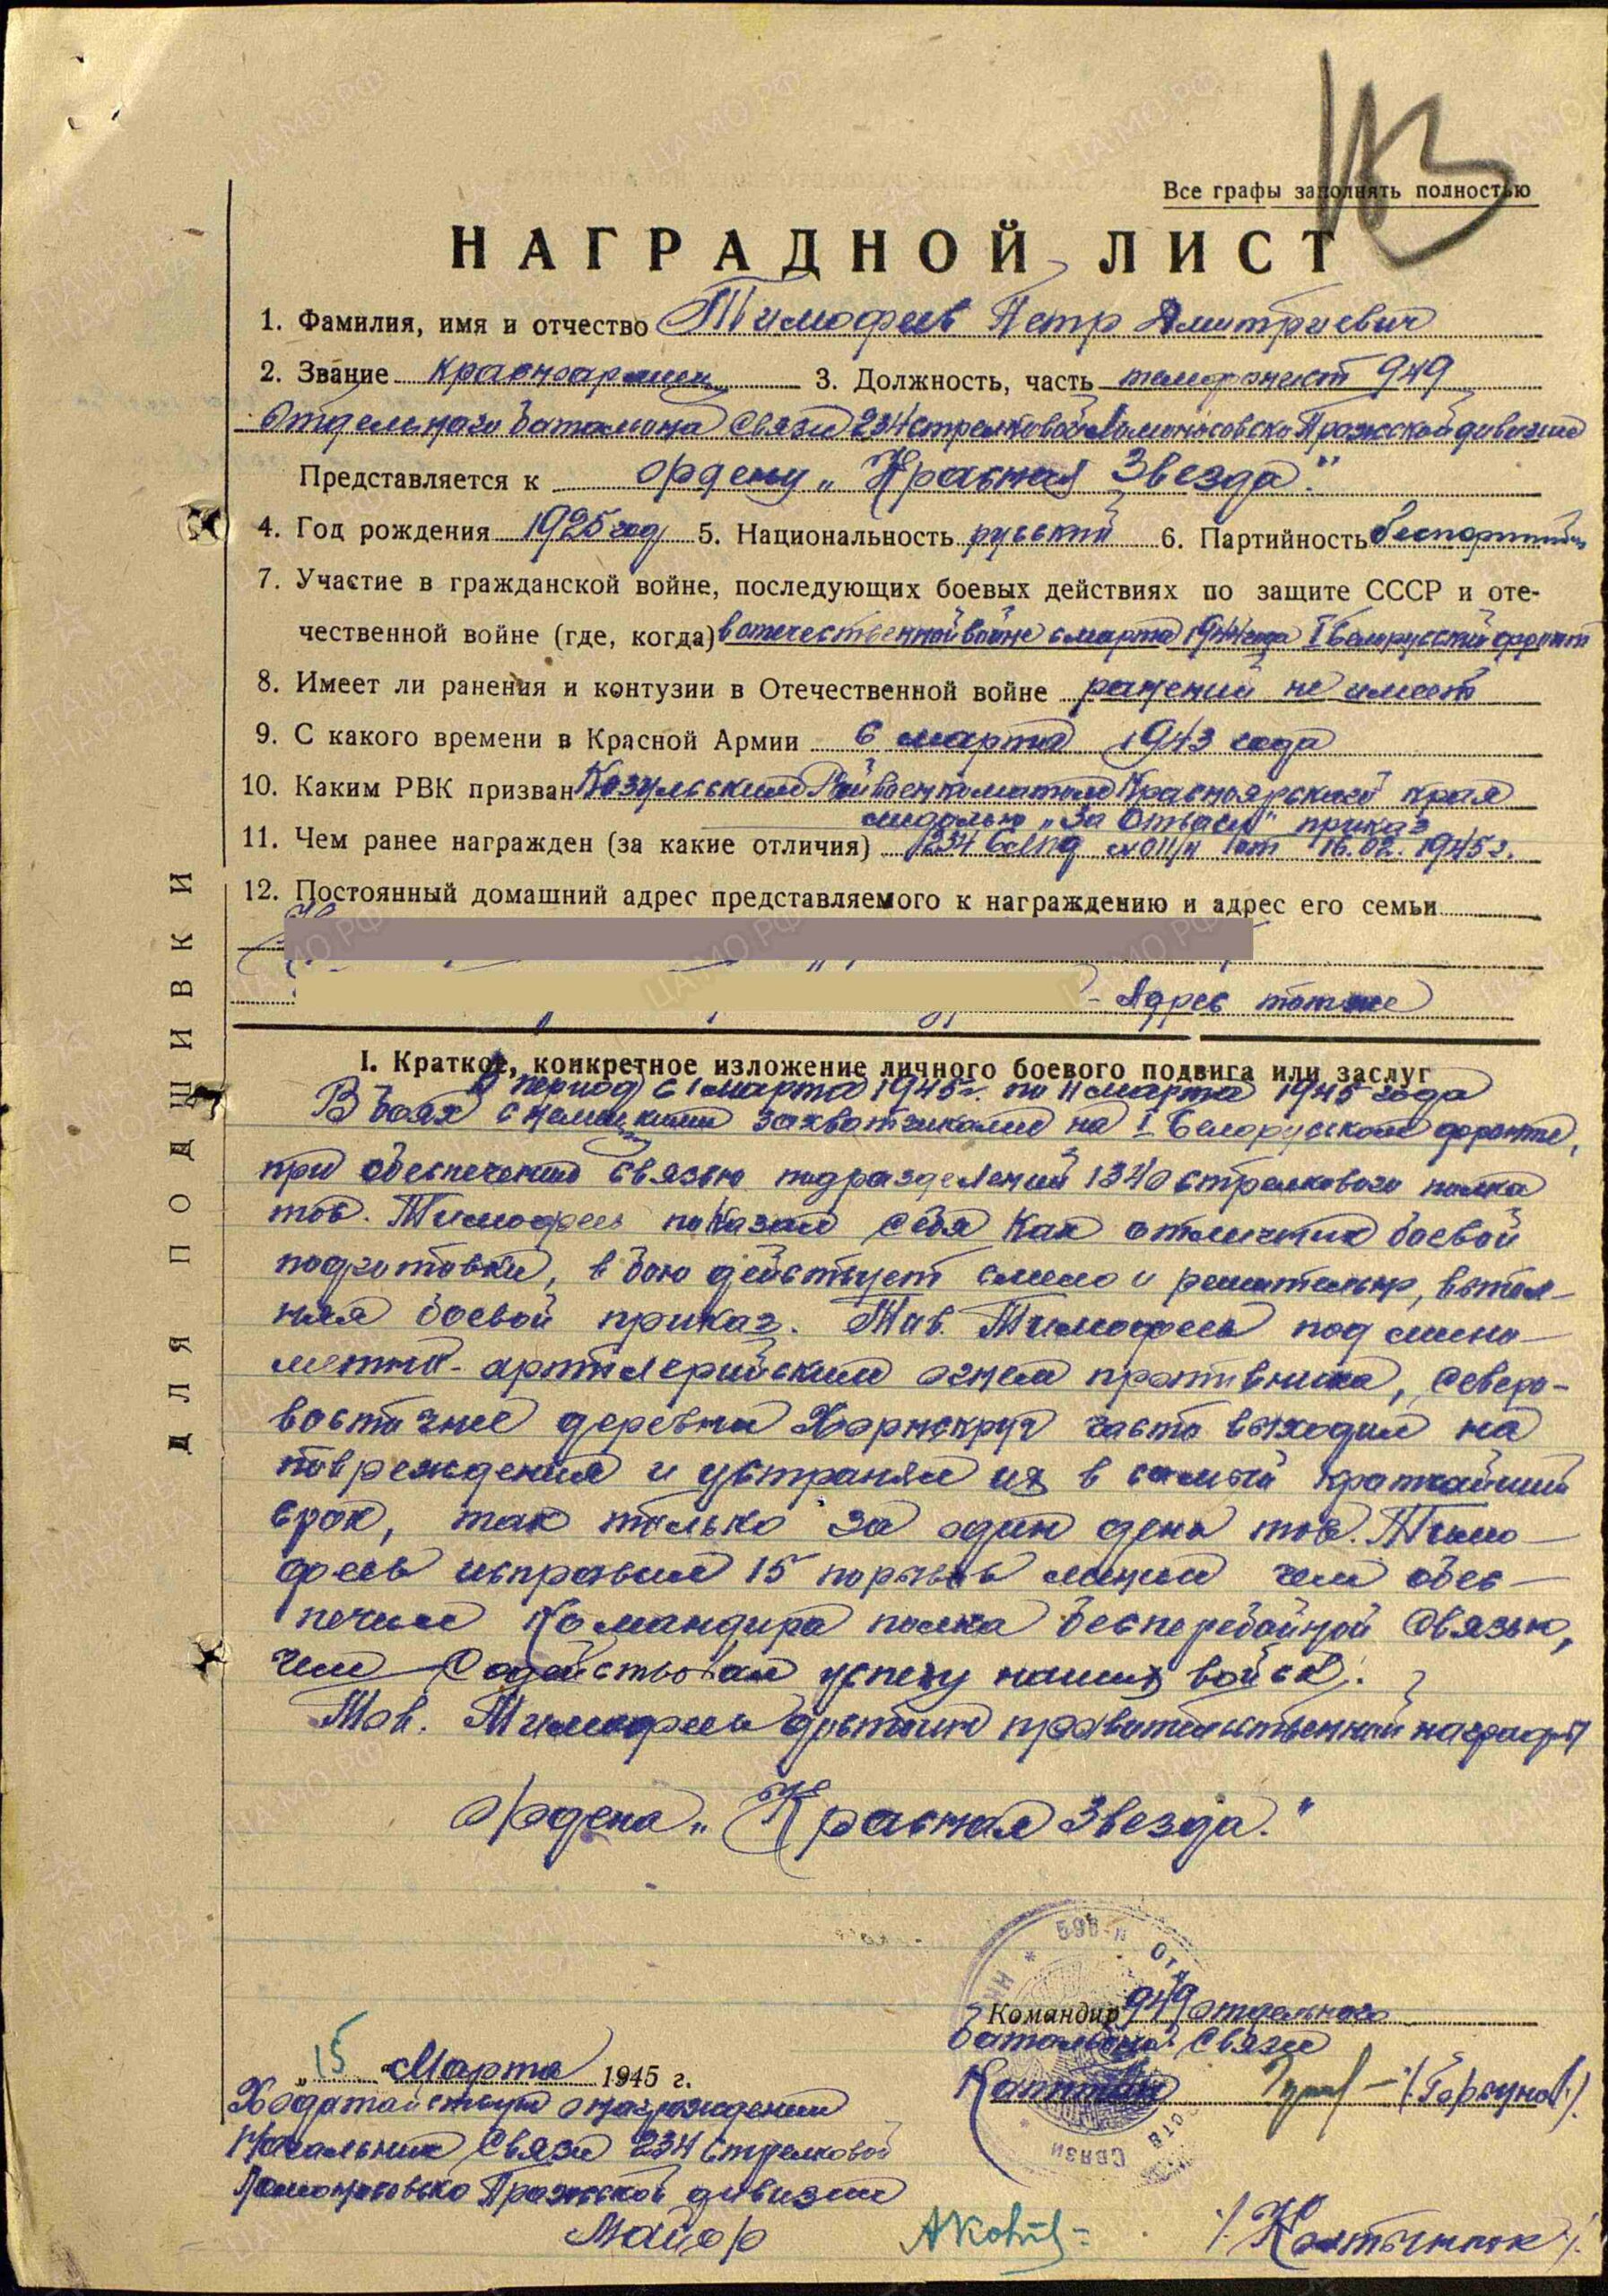 113
Все графы заполнять полностью
НАГРАДНОЙ ЛИСТ
1. Фамилия, имя и отчество Тимофеев Петр Дмитриевич
2. Звание красноармеец 3. Должность, часть телефонист 949
отдельного батальона связи 234 стрелковой Ломоносовско Пражской дивизии
Представляется к ордену „Красная Звезда"
4. Год рождения 1925 год 5. Национальность русский 6. Партийность беспартийн
7. Участие в гражданской войне, последующих боевых действиях по защите СССР и оте-
чественной войне (где, когда) в отечественной войне с марта 1944 года I Белорусский фронт
8. Имеет ли ранения и контузии в Отечественной войне ранений не имеет
9. С какого времени в Красной Армии 6 марта 1943 года
10. Каким РВК призван Козульским Райвоенкоматом Красноярского края
медалью „За Отвагу" приказ
11. Чем ранее награжден (за какие отличия) 234 от 16.02.1945г.
12. Постоянный домашний адрес представляемого к награждению и адрес его семьи
- Адрес тот же
I. Краткое, конкретное изложение личного боевого подвига или заслуг
В период с 1 марта 1945г. по 11 марта 1945 года
В боях с немецкими захватчиками на I Белорусском фронте,
при обеспечении связью подразделений 1340 стрелкового полка
тов. Тимофеев показал себя как отличник боевой
подготовки, в бою действует смело и решительно, выпол-
няя боевой приказ. Тов. Тимофеев под мино-
метно-артилерийским огнем противника, северо-
восточнее деревни Хорнскруг часто выходил на
повреждения и устранял их в самый кратчайший
срок, так только за один день тов. Тимо-
феев исправил 15 порывов линии чем обес-
печил Командира полка бесперебойной связью,
чем содействовал успеху наших войск.
Тов. Тимофеев достоин правительственной награды
ордена „Красная Звезда."
Командир 949 отдельного
батальона связи
Капитан /Горгунов/.
„15" Марта 1945 г.
Ходатайствую о награждении
Начальник связи 234 стрелковой
Ломоносовско Пражской дивизии
Майор
ДЛЯ ПОДШИВКИ